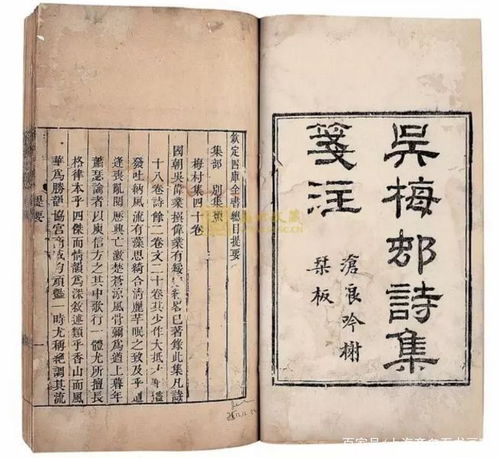 吳梅邨詩集
箋注
滄浪吟榭
栞板
欽定四庫全書總目提要
集部 別集類
梅村集四十卷
國朝吳偉業撰偉業有綏寇紀略已著錄此集凡詩
十八卷詩餘二卷文二十卷其少作大抵才華艷
發吐納風流有藻思綺合清麗芊眠之致及乎遭
逢喪亂閱歷興亡激楚蒼涼風骨彌爲遒上暮年
蕭瑟論者以庾信方之其中歌行一體尤所擅長
格律本乎四傑而情韻爲深敘述類乎香山而風
華爲勝韻協宮商感均頑豔一時尤稱絕調其流
提要